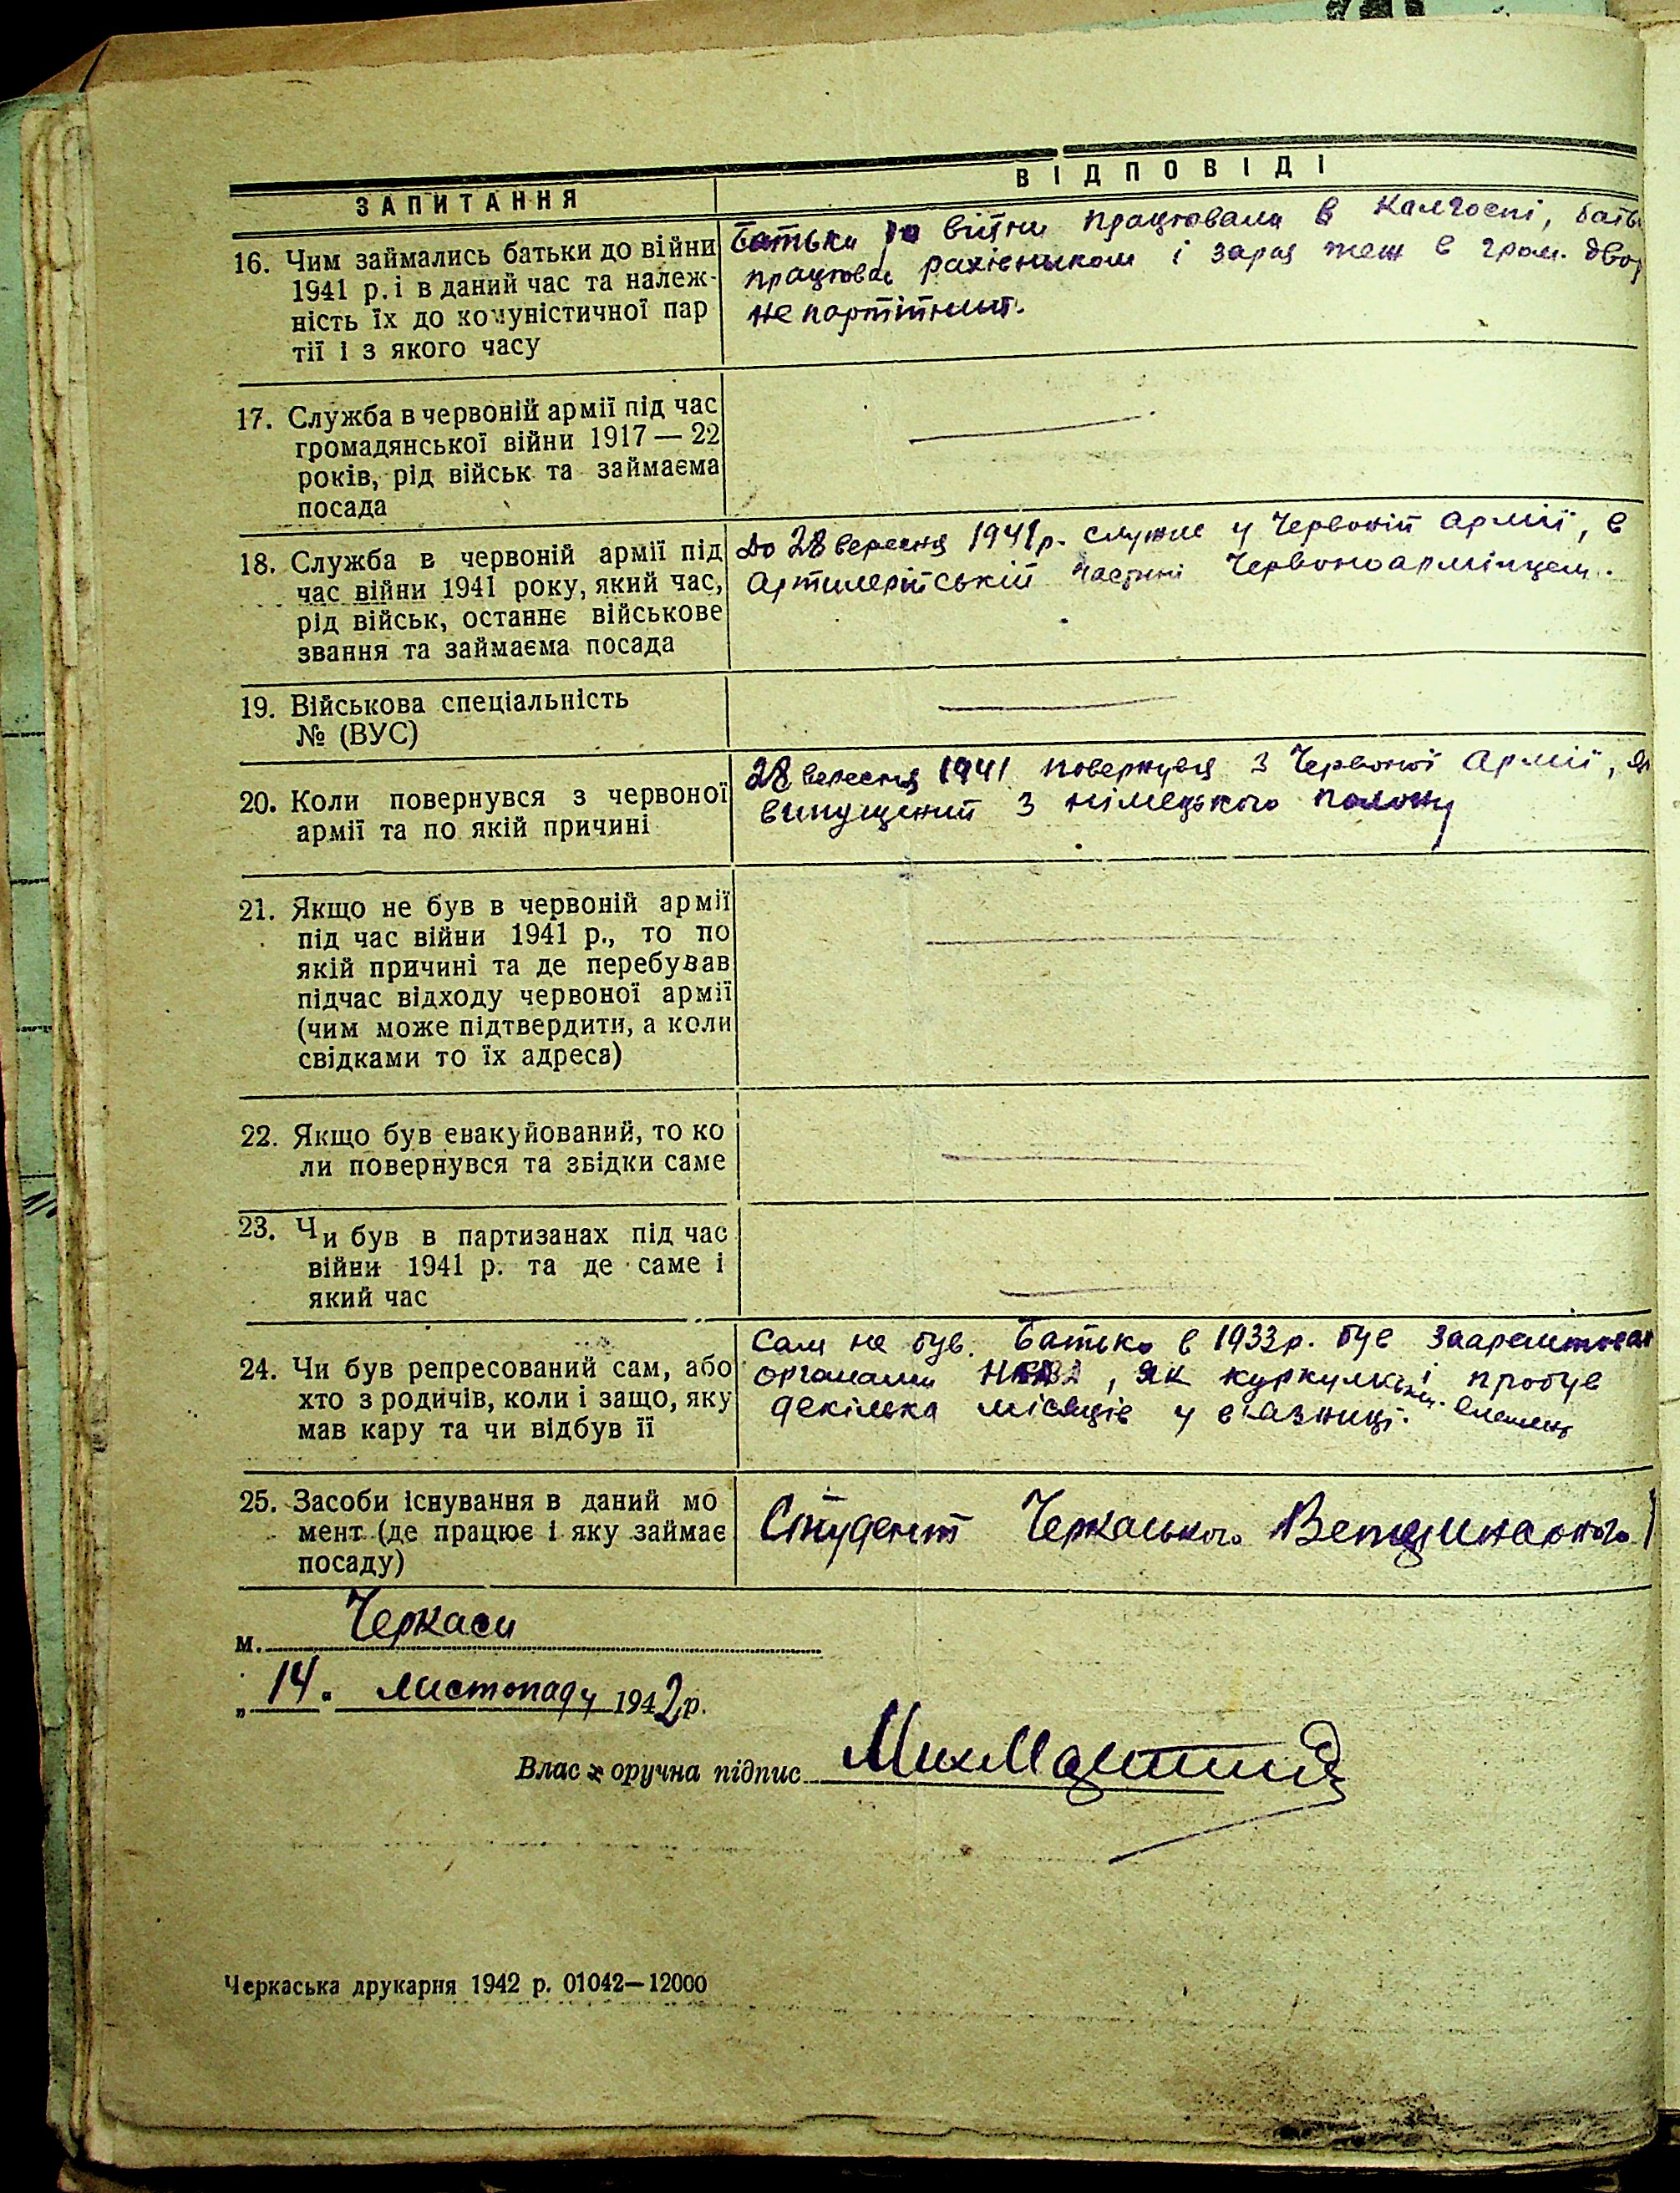 ЗАПИТАННЯ
ВІДПОВІДІ
16. Чим займались батьки до війни
1941 р. і в даний час та належ-
ність їх до комуністичної пар
тії і з якого часу
Батьки до війни працювали в калгоспі, бать
працював рахівником і зараз теж в гром. двор
не партійний.
17. Служба в червоній армії під час
громадянської війни 1917 — 22
років, рід військ та займаєма
посада
18. Служба в червоній армії під
час війни 1941 року, який час,
рід військ, останнє військове
звання та займаєма посада
До 28 вересня 1941 р. служив у Червоній Армії, в
артилерійській частині Червоноармійцем.
19. Військова спеціальність
№ (ВУС)
20. Коли повернувся з червоної
армії та по якій причині
28 вересня 1941 повернувся з Червоної Армії,
випущений з німецького полону
21. Якщо не був в червоній армії
під час війни 1941 р., то по
якій причині та де перебував
підчас відходу червоної армії
(чим може підтвердити, а коли
свідками то їх адреса)
22. Якщо був евакуйований, то ко
ли повернувся та збідки саме
23. Чи був в партизанах під час
війни 1941 р. та де саме і
який час
24. Чи був репресований сам, або
хто з родичів, коли і защо, яку
мав кару та чи відбув її
Сам не був. Батько в 1933 р. був заарештован
органами НКВД, як куркульськ. елемент і пробув
декілька місяців у в'язниці.
25. Засоби існування в даний мо
мент (де працює і яку займає
посаду)
Студент Черкаського Ветеринарного
м. Черкаси
„14" листопаду 1942 р.
Власноручна підпис
Черкаська друкарня 1942 р. 01042—12000